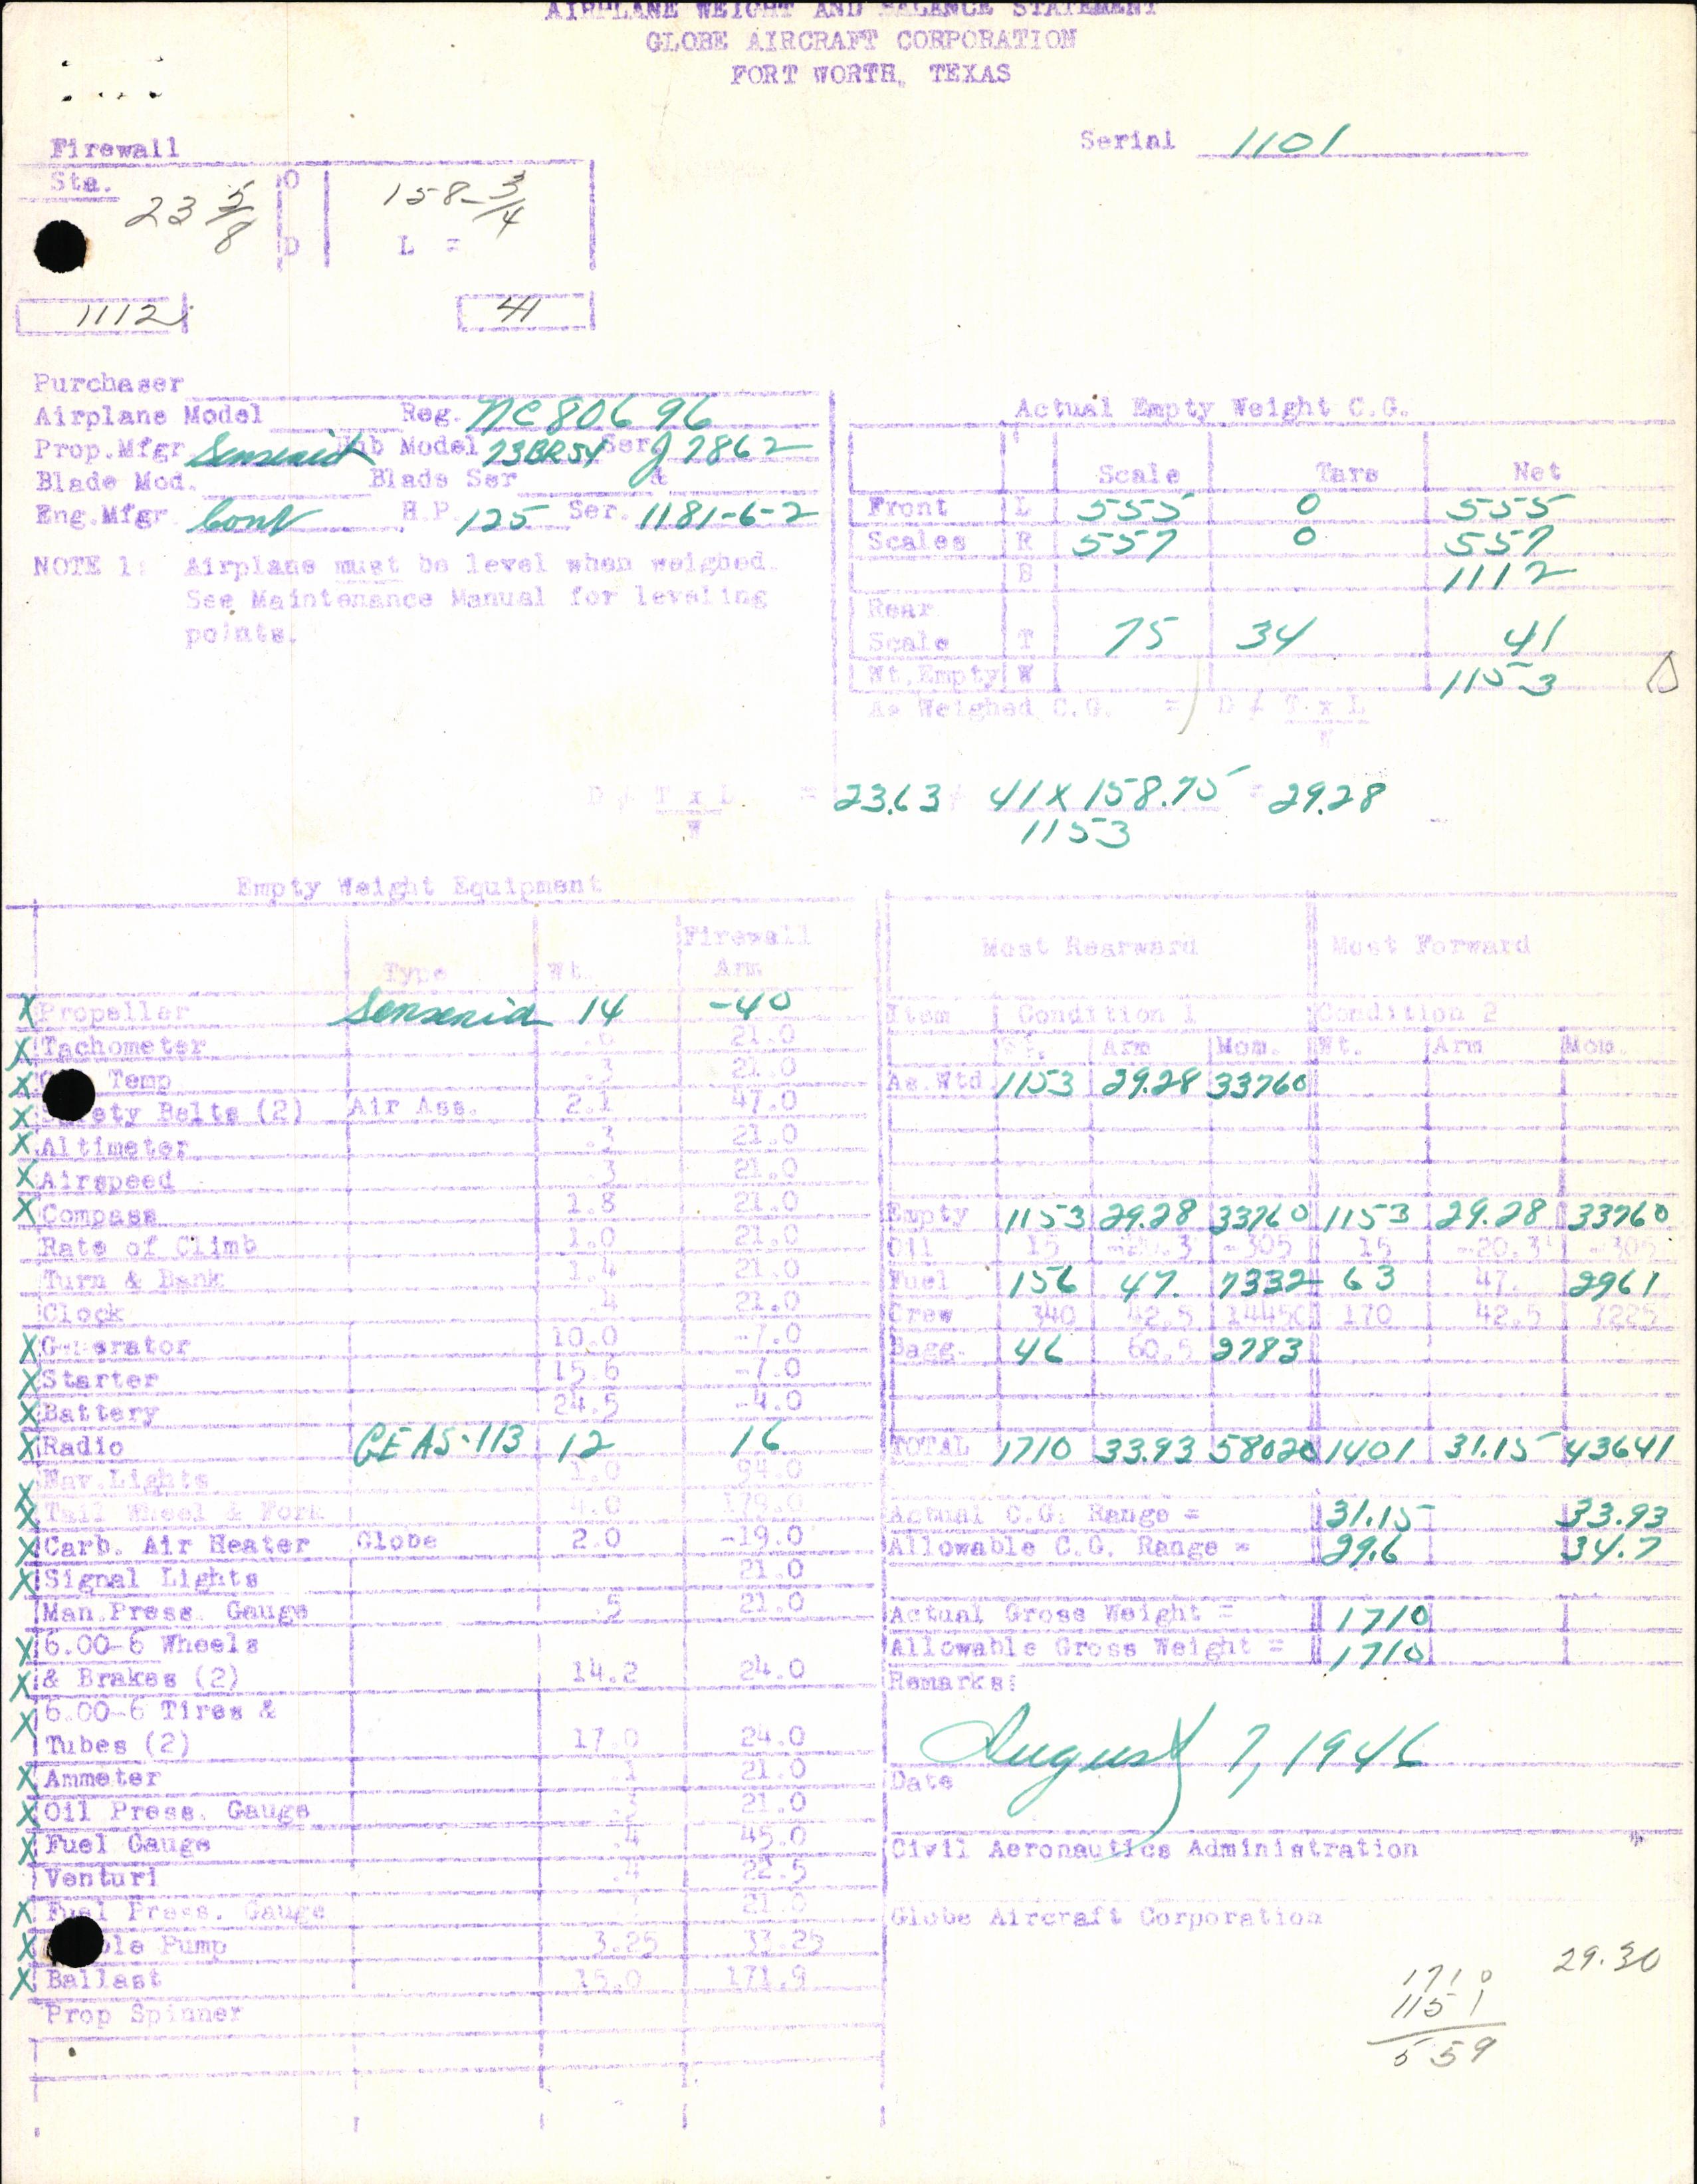 AIRPLANE WEIGHT AND BALANCE STATEMENT
GLOBE AIRCRAFT CORPORATION
FORT WORTH, TEXAS
Serial 1101
Firewall
Sta. O
23 5/8 158-3/4
D L =
1112 41
Purchaser
Airplane Model Reg. NC80696
Prop.Mfgr Sensenich Hub Model 73BR54 Ser. J7862
Blade Mod. Blade Ser &
Eng.Mfgr Cont H.P. 125 Ser. 1181-6-2
NOTE 1: Airplane must be level when weighed.
See Maintenance Manual for leveling
points.
Actual Empty Weight C.G.
Scale Tare Net
Front L 555 0 555
Scales R 557 0 557
B 1112
Rear
Scale T 75 34 41
Wt.Empty W 1153
As Weighed C.G. = D ≠ T x L
W
D ≠ T x L = 23.63 ≠ 41 X 158.75 = 29.28
W 1153
Empty Weight Equipment
Type Wt. Firewall Arm
X Propeller Sensenich 14 -40
X Tachometer .6 21.0
X Temp .3 21.0
X Safety Belts (2) Air Ass. 2.1 47.0
X Altimeter .3 21.0
X Airspeed .3 21.0
X Compass 1.8 21.0
Rate of Climb 1.0 21.0
Turn & Bank 1.4 21.0
Clock .4 21.0
X Generator 10.0 -7.0
X Starter 15.6 -7.0
X Battery 24.5 -4.0
X Radio GE AS-113 12 16
X Nav.Lights 1.0 94.0
X Tail Wheel & Fork 4.0 179.0
X Carb. Air Heater Globe 2.0 -19.0
X Signal Lights 21.0
Man.Press. Gauge .5 21.0
X 6.00-6 Wheels
X & Brakes (2) 14.2 24.0
X 6.00-6 Tires &
Tubes (2) 17.0 24.0
X Ammeter .1 21.0
X Oil Press. Gauge 21.0
X Fuel Gauge .4 45.0
Venturi .4 22.5
X Fuel Press. Gauge 21.0
X Pump 3.25 33.25
X Ballast 15.0 171.9
Prop Spinner
Most Rearward Most Forward
Item Condition 1 Condition 2
Wt. Arm Mom. Wt. Arm Mom.
As.Wtd. 1153 29.28 33760
Empty 1153 29.28 33760 1153 29.28 33760
Oil 15 -20.3 -305 15 -20.3 -305
Fuel 156 47. 7332 63 47. 2961
Crew 340 42.5 14450 170 42.5 7225
Bagg. 46 60.5 2783
TOTAL 1710 33.93 58020 1401 31.15 43641
Actual C.G. Range = 31.15 33.93
Allowable C.G. Range = 29.6 34.7
Actual Gross Weight = 1710
Allowable Gross Weight = 1710
Remarks:
August 7, 1946
Date
Civil Aeronautics Administration
Globe Aircraft Corporation
29.30
1710
1151
559